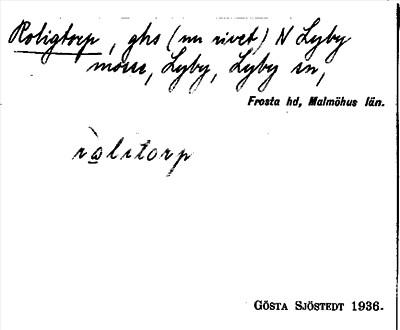 Roligtorp, ghs (nu rivet) N Lyby
mosse, Lyby, Lyby sn,
Frosta hd, Malmöhus län.
ròlitorp
GÖSTA SJÖSTEDT 1936.